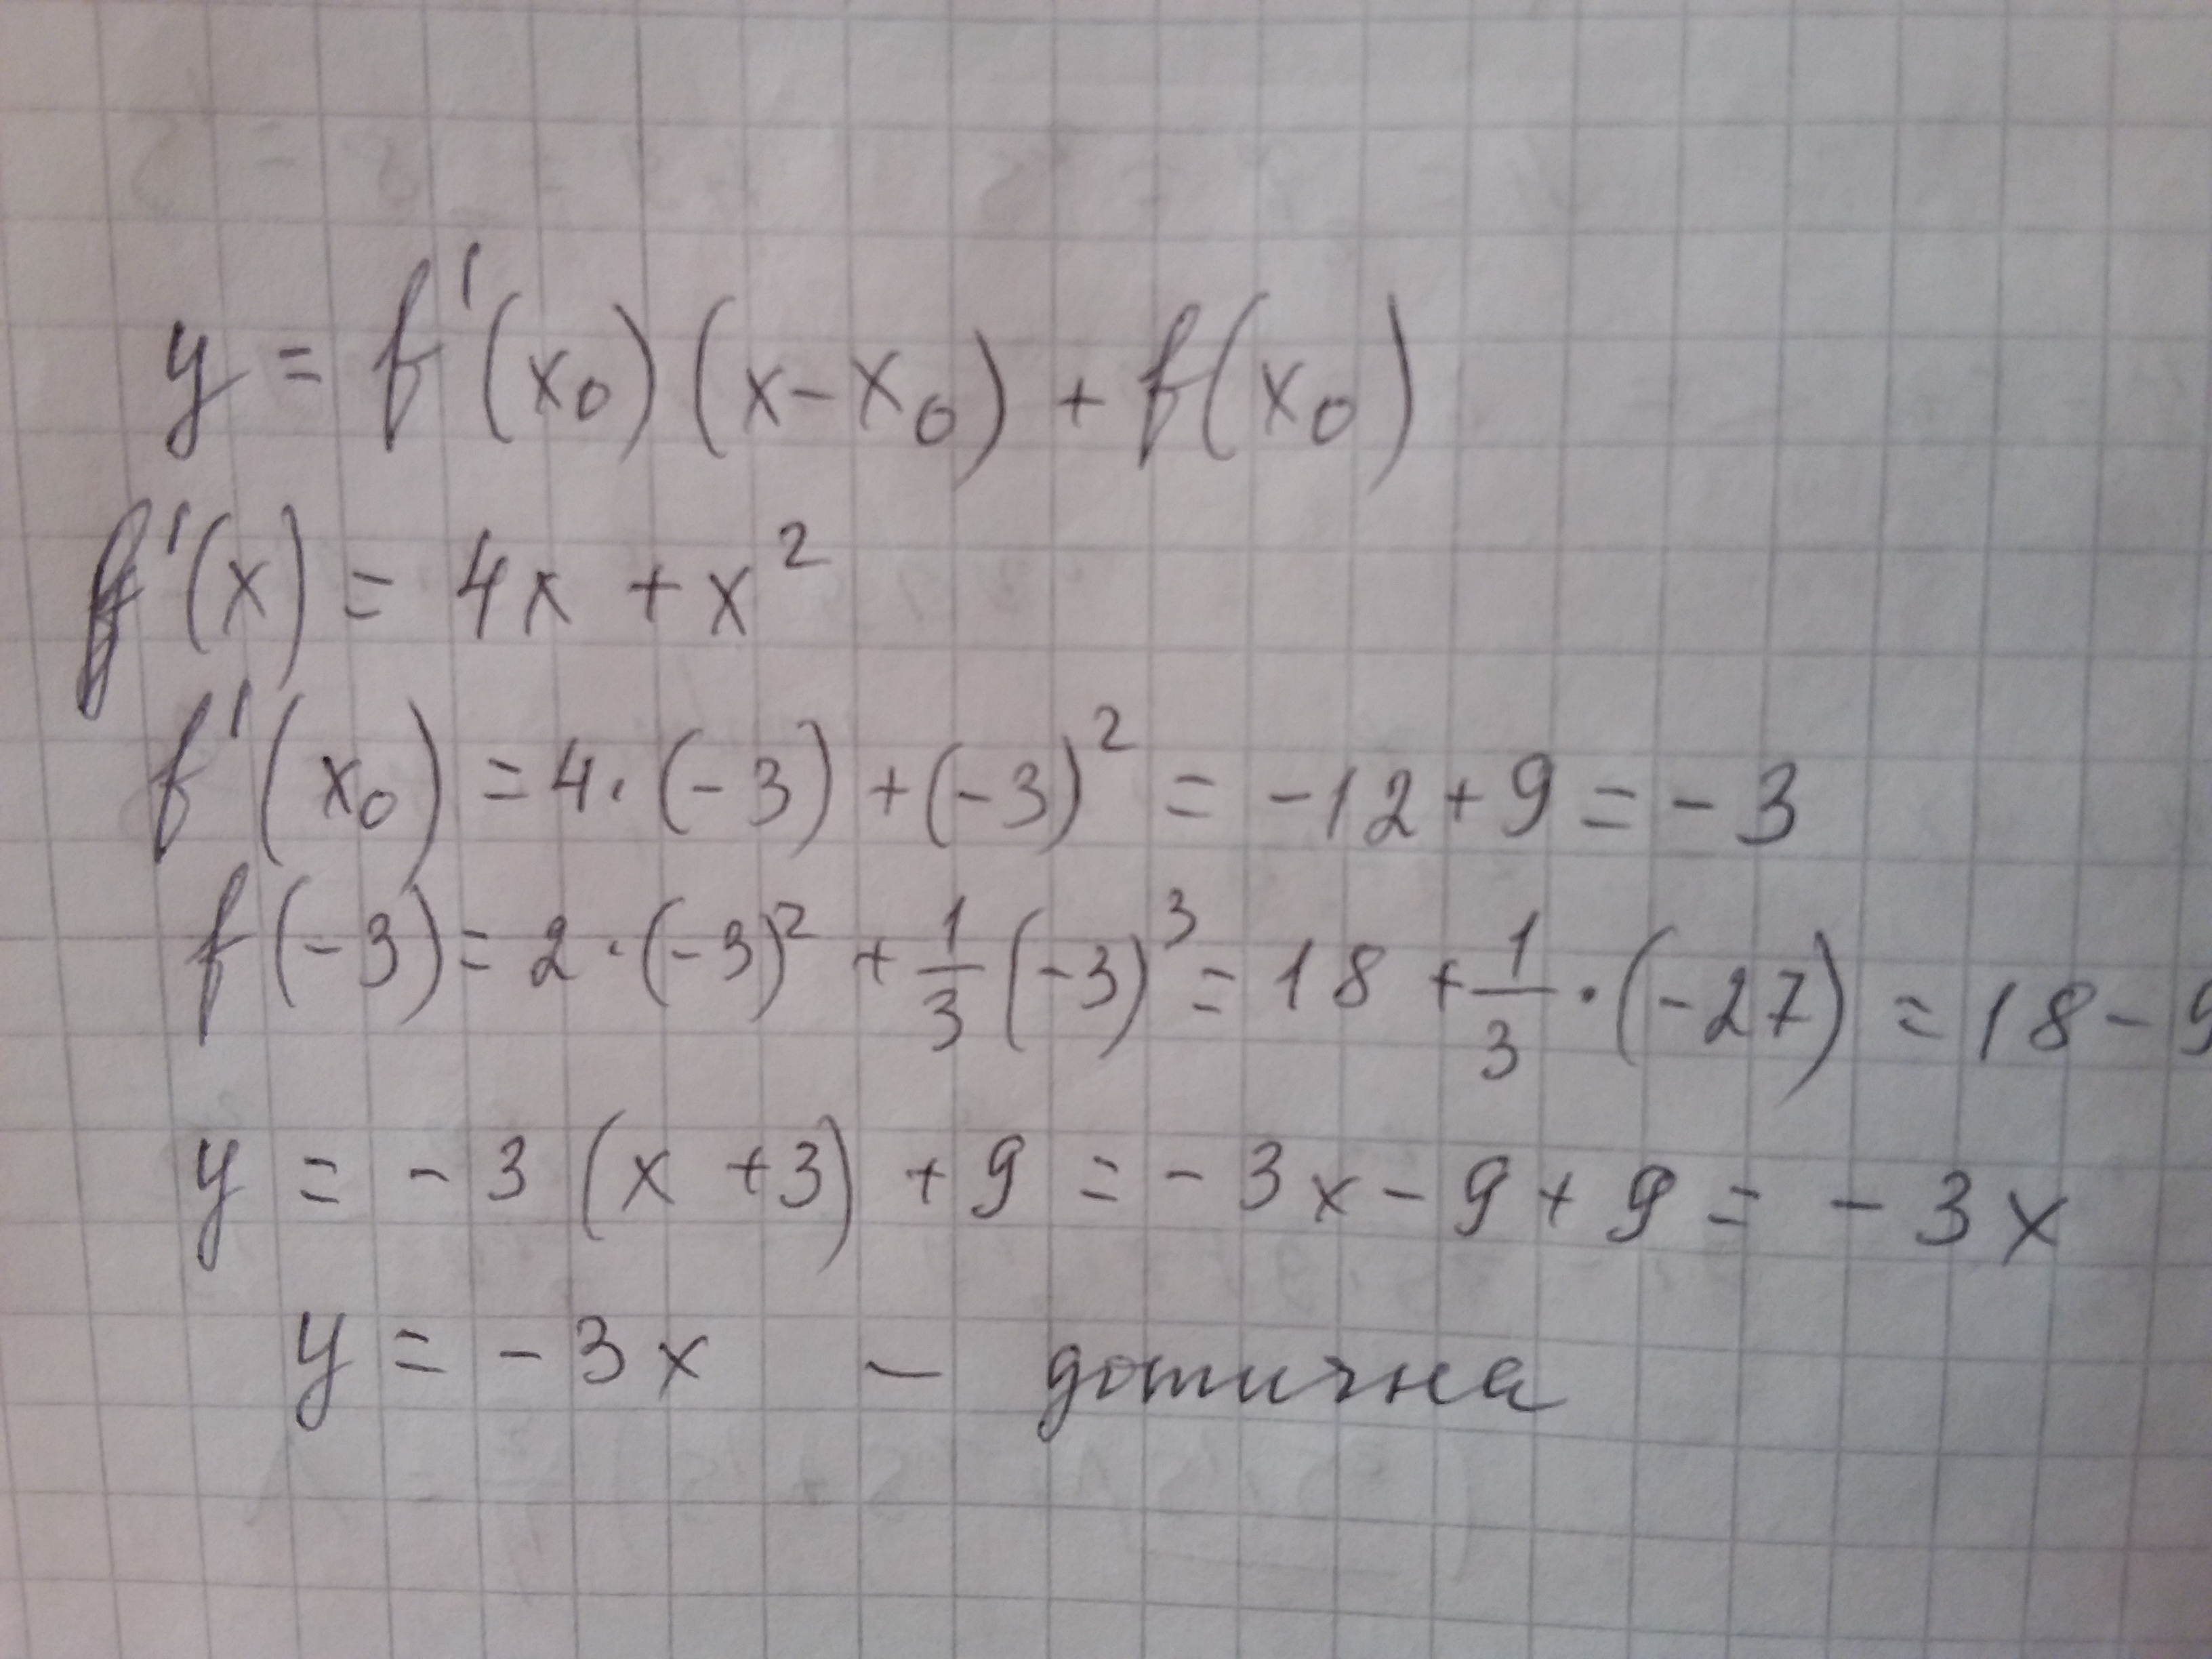 y = f'(x₀)(x-x₀) + f(x₀)
f'(x) = 4x + x²
f'(x₀) = 4·(-3) + (-3)² = -12 + 9 = -3
f(-3) = 2·(-3)² + 1/3 (-3)³ = 18 + 1/3 · (-27) = 18 - 9
y = -3(x+3) + 9 = -3x - 9 + 9 = -3x
y = -3x - дотична